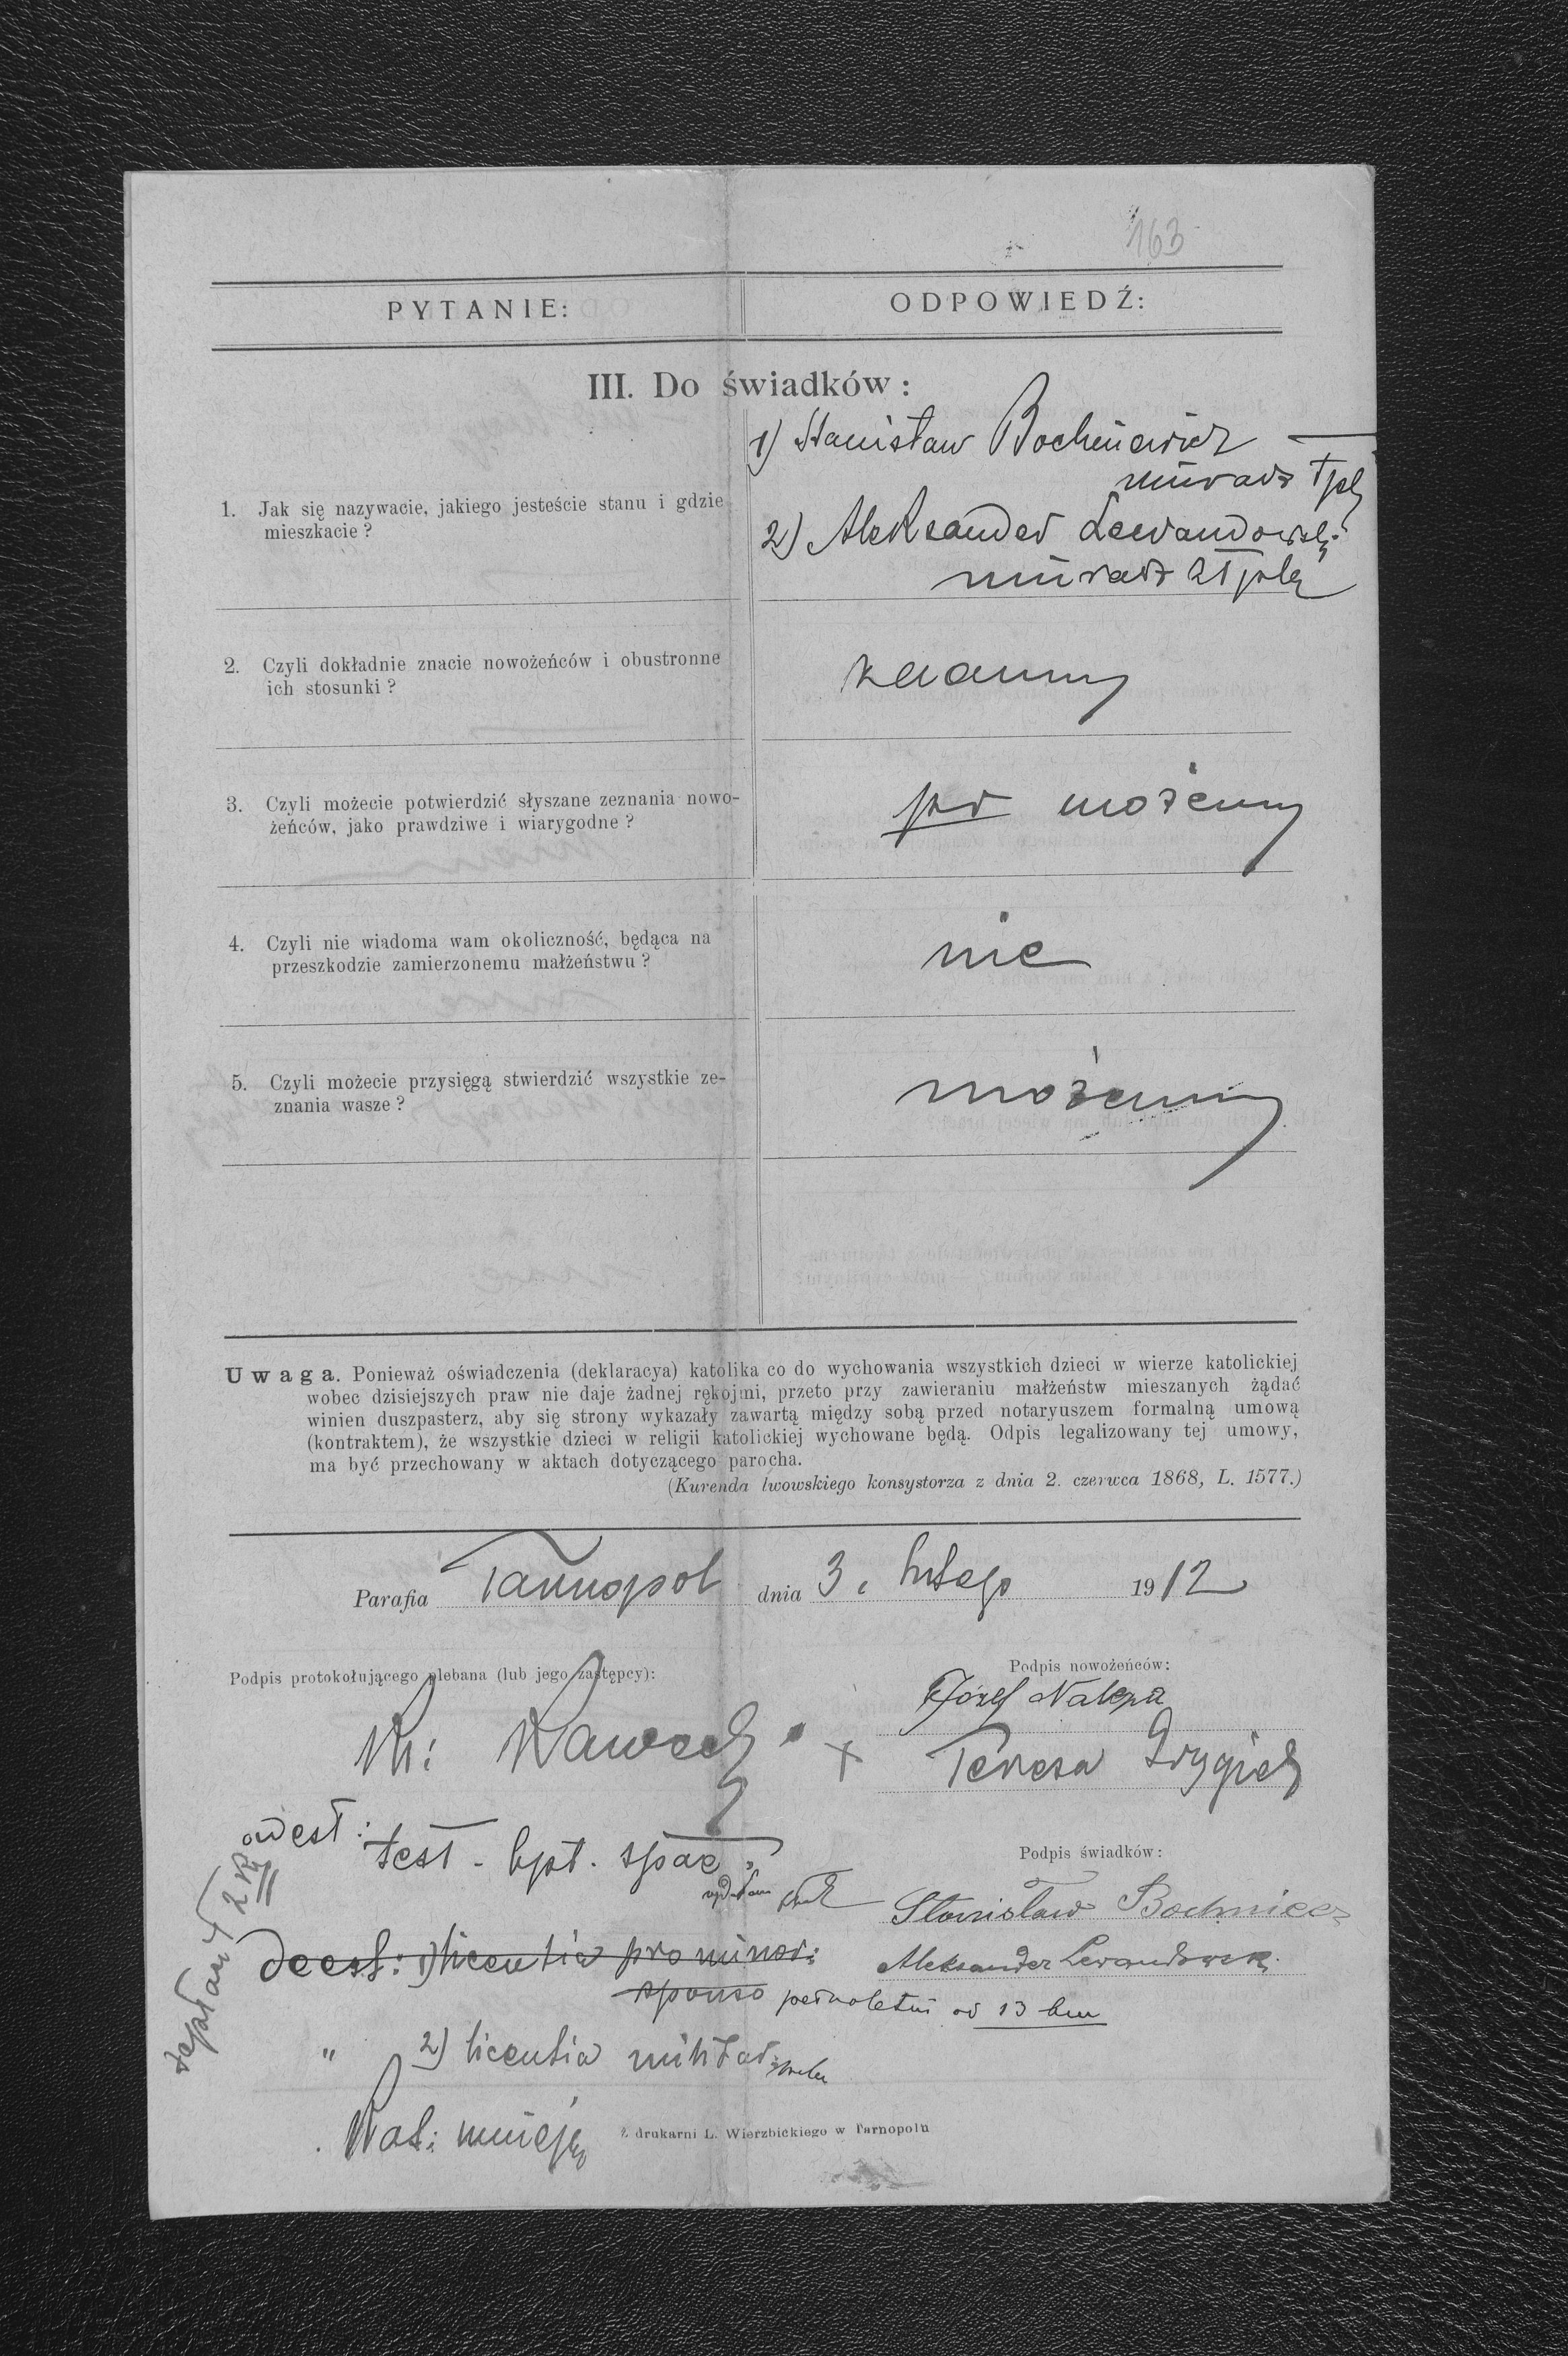 163
PYTANIE:
ODPOWIEDŹ:
III. Do świadków:
1. Jak się nazywacie, jakiego jesteście stanu i gdzie
mieszkacie?
1) Stanisław
murarz Tpol
2) Aleksander Lewandowski
murarz
2. Czyli dokładnie znacie nowożeńców i obustronne
ich stosunki?
znamy
3. Czyli możecie potwierdzić słyszane zeznania nowo-
żeńców, jako prawdziwe i wiarygodne?
możemy
4. Czyli nie wiadoma wam okoliczność, będąca na
przeszkodzie zamierzonemu małżeństwu?
nie
5. Czyli możecie przysięgą stwierdzić wszystkie ze-
znania wasze?
możemy
Uwaga. Ponieważ oświadczenia (deklaracya) katolika co do wychowania wszystkich dzieci w wierze katolickiej
wobec dzisiejszych praw nie daje żadnej rękojmi, przeto przy zawieraniu małżeństw mieszanych żądać
winien duszpasterz, aby się strony wykazały zawartą między sobą przed notaryuszem formalną umową
(kontraktem), że wszystkie dzieci w religii katolickiej wychowane będą. Odpis legalizowany tej umowy,
ma być przechowany w aktach dotyczącego parocha.
(Kurenda lwowskiego konsystorza z dnia 2. czerwca 1868, L. 1577.)
Parafia Tarnopol dnia 3. lutego 1912
Podpis protokołującego plebana (lub jego zastępcy):
Podpis nowożeńców:
Józef Nalepa
X: Kawecki
+ Teresa Drygiel
adest:
test. bpt.
Podpis świadków:
Stanisław
deest: 1) licentia pro minor:
Aleksander Lewandowski
sponso pełnoletni od 13 bm
" 2) licentia militar:
zapłacił 2 K
Z drukarni L. Wierzbickiego w Tarnopolu